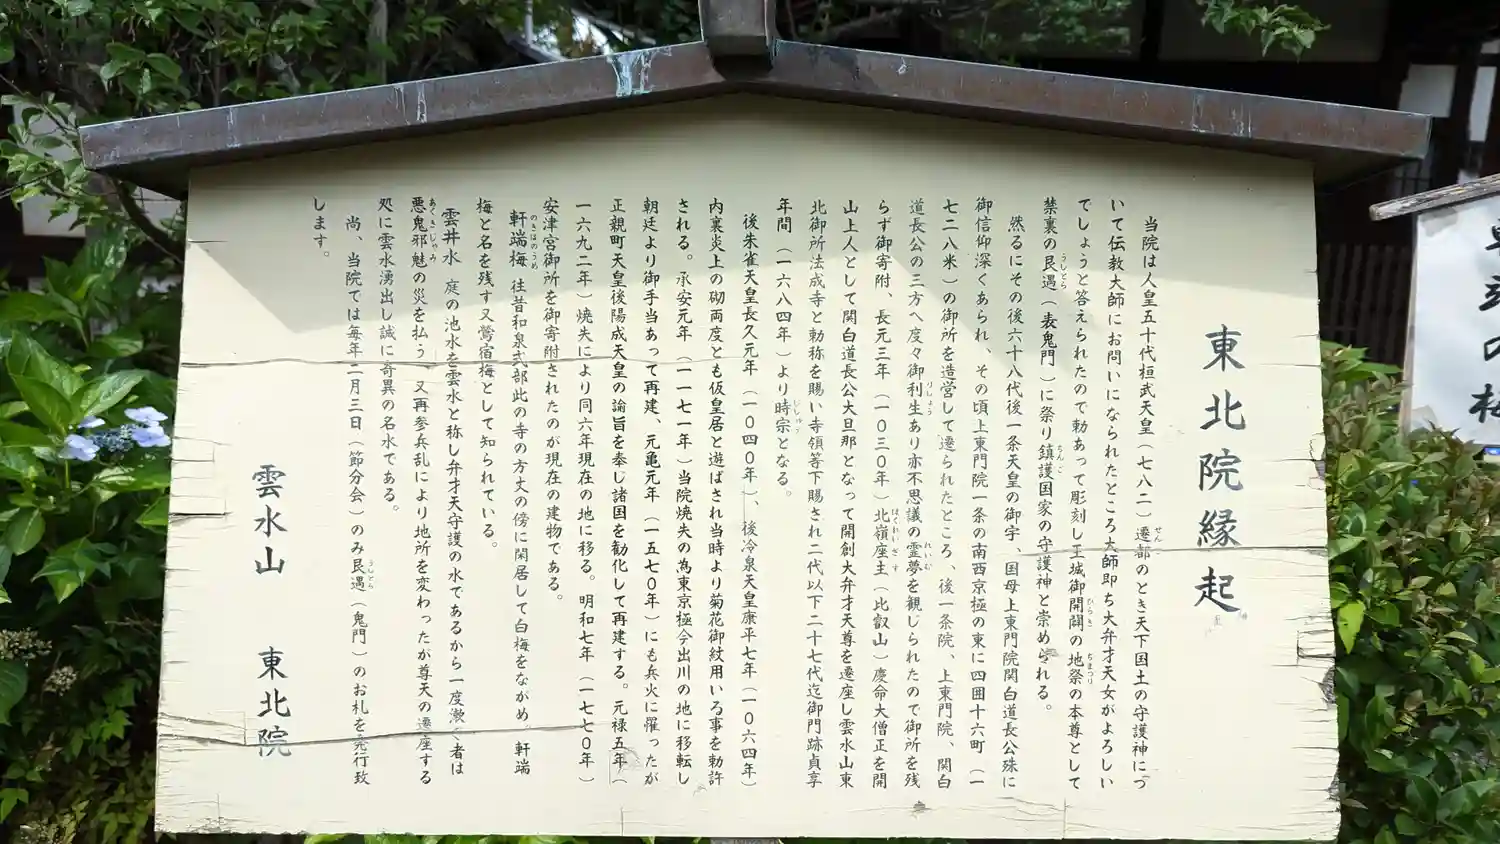 東北院縁起
当院は人皇五十代桓武天皇（七八二）遷都のとき天下国土の守護神につ
いて伝教大師にお問いになられたところ大師即ち大弁才天女がよろしい
でしょうと答えられたので勅あって彫刻し王城御開闢の地祭の本尊として
禁裏の艮遇（表鬼門）に祭り鎮護国家の守護神と崇められる。
然るにその後六十八代後一条天皇の御宇、国母上東門院関白道長公殊に
御信仰深くあられ、その頃上東門院一条の南西京極の東に四囲十六町（一
七二八米）の御所を造営して遷られたところ、後一条院、上東門院、関白
道長公の三方へ度々御利生あり亦不思議の霊夢を観じられたので御所を残
らず御寄附、長元三年（一〇三〇年）北嶺座主（比叡山）慶命大僧正を開
山上人として関白道長公大旦那となって開創大弁才天尊を遷座し雲水山東
北御所法成寺と勅称を賜い寺領等下賜され二代以下二十七代迄御門跡貞享
年間（一六八四年）より時宗となる。
後朱雀天皇長久元年（一〇四〇年）、後冷泉天皇康平七年（一〇六四年）
内裏炎上の砌両度とも仮皇居と遊ばされ当時より菊花御紋用いる事を勅許
される。承安元年（一一七一年）当院焼失の為東京極今出川の地に移転し
朝廷より御手当あって再建、元亀元年（一五七〇年）にも兵火に罹ったが
正親町天皇後陽成天皇の論旨を奉じ諸国を勧化して再建する。元禄五年（
一六九二年）焼失により同六年現在の地に移る。明和七年（一七七〇年）
安津宮御所を御寄附されたのが現在の建物である。
軒端梅 往昔和泉式部此の寺の方丈の傍に閑居して白梅をながめ、軒端
梅と名を残す又鶯宿梅として知られている。
雲井水 庭の池水を雲水と称し弁才天守護の水であるから一度漱 者は
悪鬼邪魅の災を払う 又再参兵乱により地所を変わったが尊天の遷座する
処に雲水湧出し誠に奇異の名水である。
尚、当院では毎年二月三日（節分会）のみ艮遇（鬼門）のお札を発行致
します。
雲水山 東北院